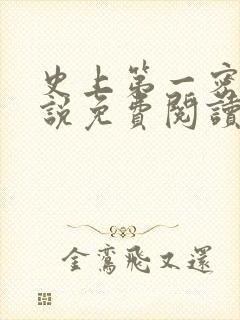 史上第一密
說免費閱讀
金鸞飛又還